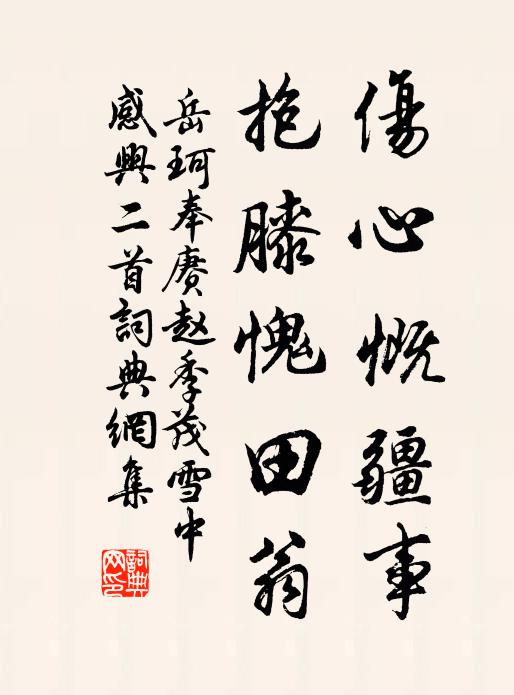 傷心慨疆事
抱膝愧田翁
岳珂奉赓赵季茂雪中
感興二首詞典網集
詞典
网印